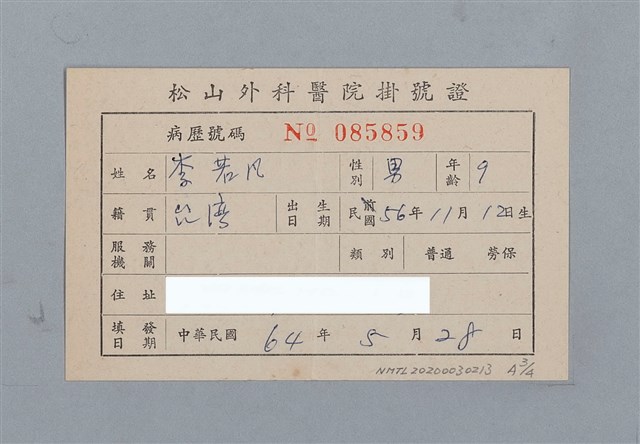 松山外科醫院掛號證
病歷號碼 No 085859
姓名 李若凡 性別 男 年齡 9
籍貫 台灣 出生日期 民前國 56年11月12日生
服務機關 類別 普通 勞保
住址
填發日期 中華民國 64年5月28日
NMTL20200030213 A 3/4